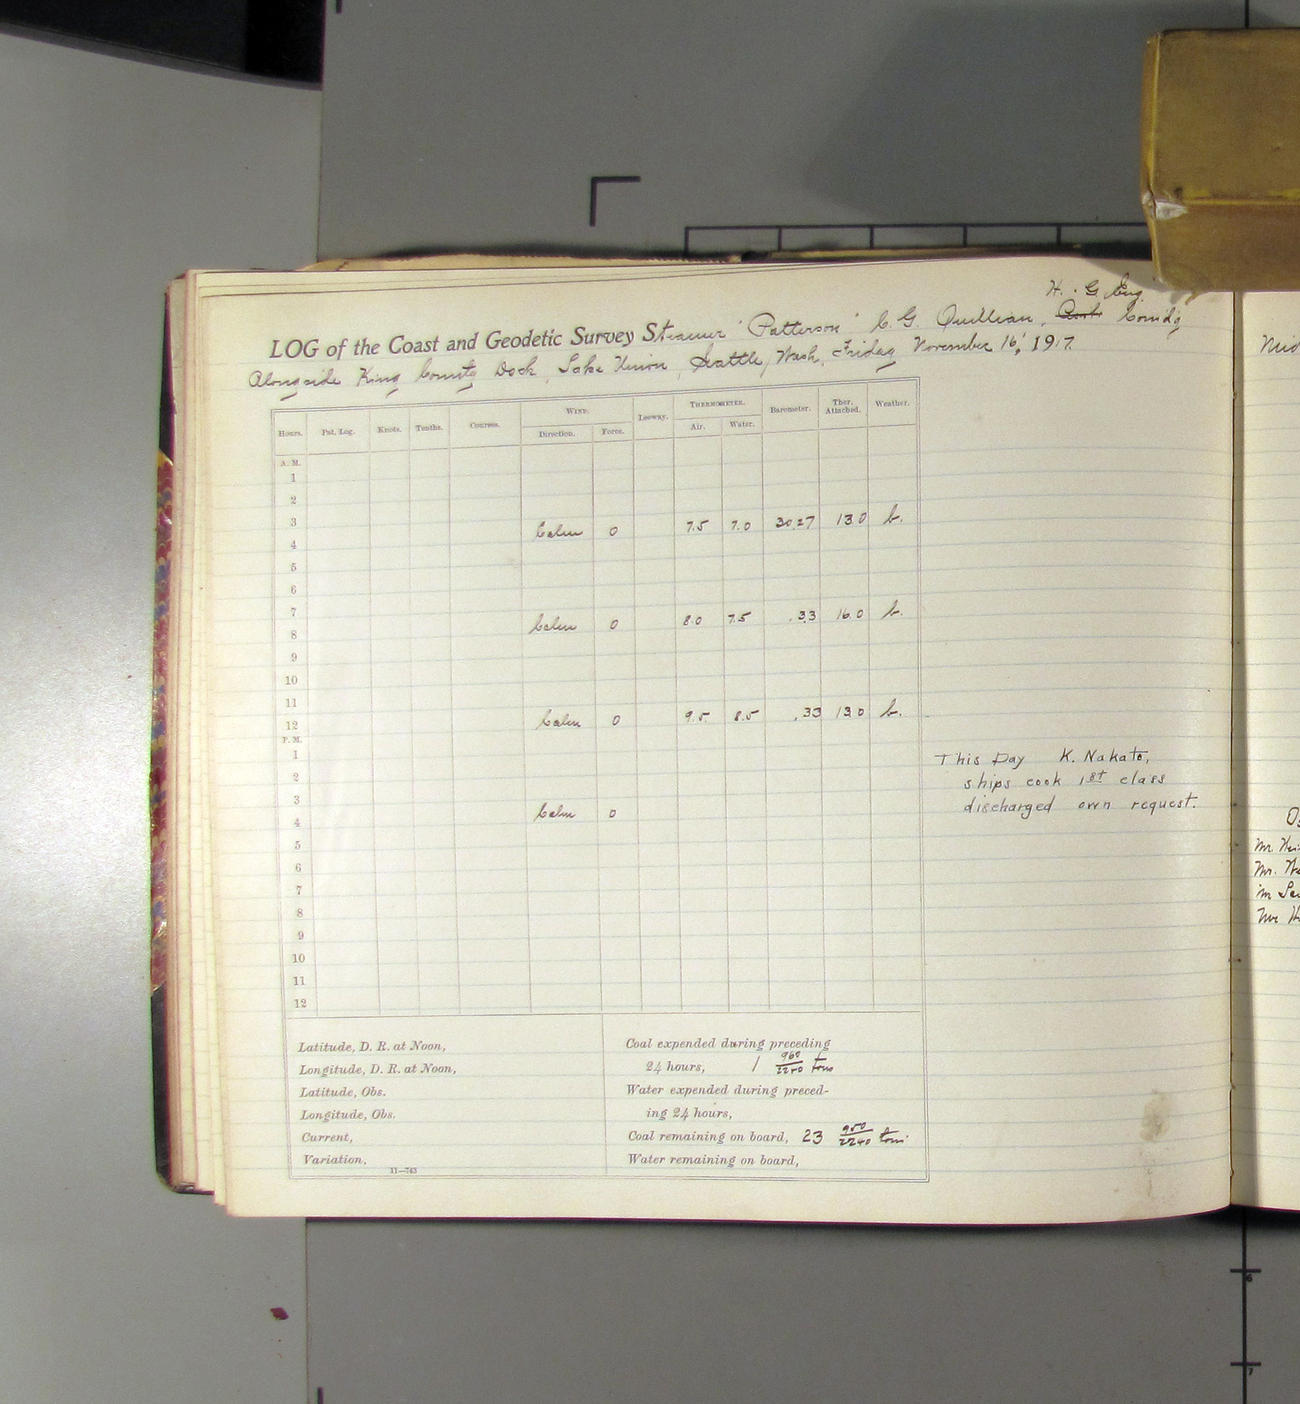 H. & G. Eng.
LOG of the Coast and Geodetic Survey Steamer "Patterson" C.G. Quillian, Comd'g
Alongside King County Dock, Lake Union, Seattle, Wash, Friday November 16, 1917.
Hours. Pat. Log. Knots. Tenths. Courses. WIND. Leeway. THERMOMETER. Barometer. Ther. Attached. Weather.
Direction. Force. Air. Water.
A. M.
1
2
3
4 Calm 0 7.5 7.0 30.27 13.0 b.
5
6
7
8 Calm 0 8.0 7.5 .33 16.0 b.
9
10
11
12 Calm 0 9.5 8.5 .33 13.0 b.
P. M.
1 This Day K. Nakato,
2 ships cook 1st class
3 discharged own request.
4 Calm 0
5
6
7
8
9
10
11
12
Latitude, D. R. at Noon,
Longitude, D. R. at Noon,
Latitude, Obs.
Longitude, Obs.
Current,
Variation,
11—743
Coal expended during preceding
24 hours, 1 960/2240 tons
Water expended during preced-
ing 24 hours,
Coal remaining on board, 23 950/2240 tons
Water remaining on board,
Mr.
Mr.
in